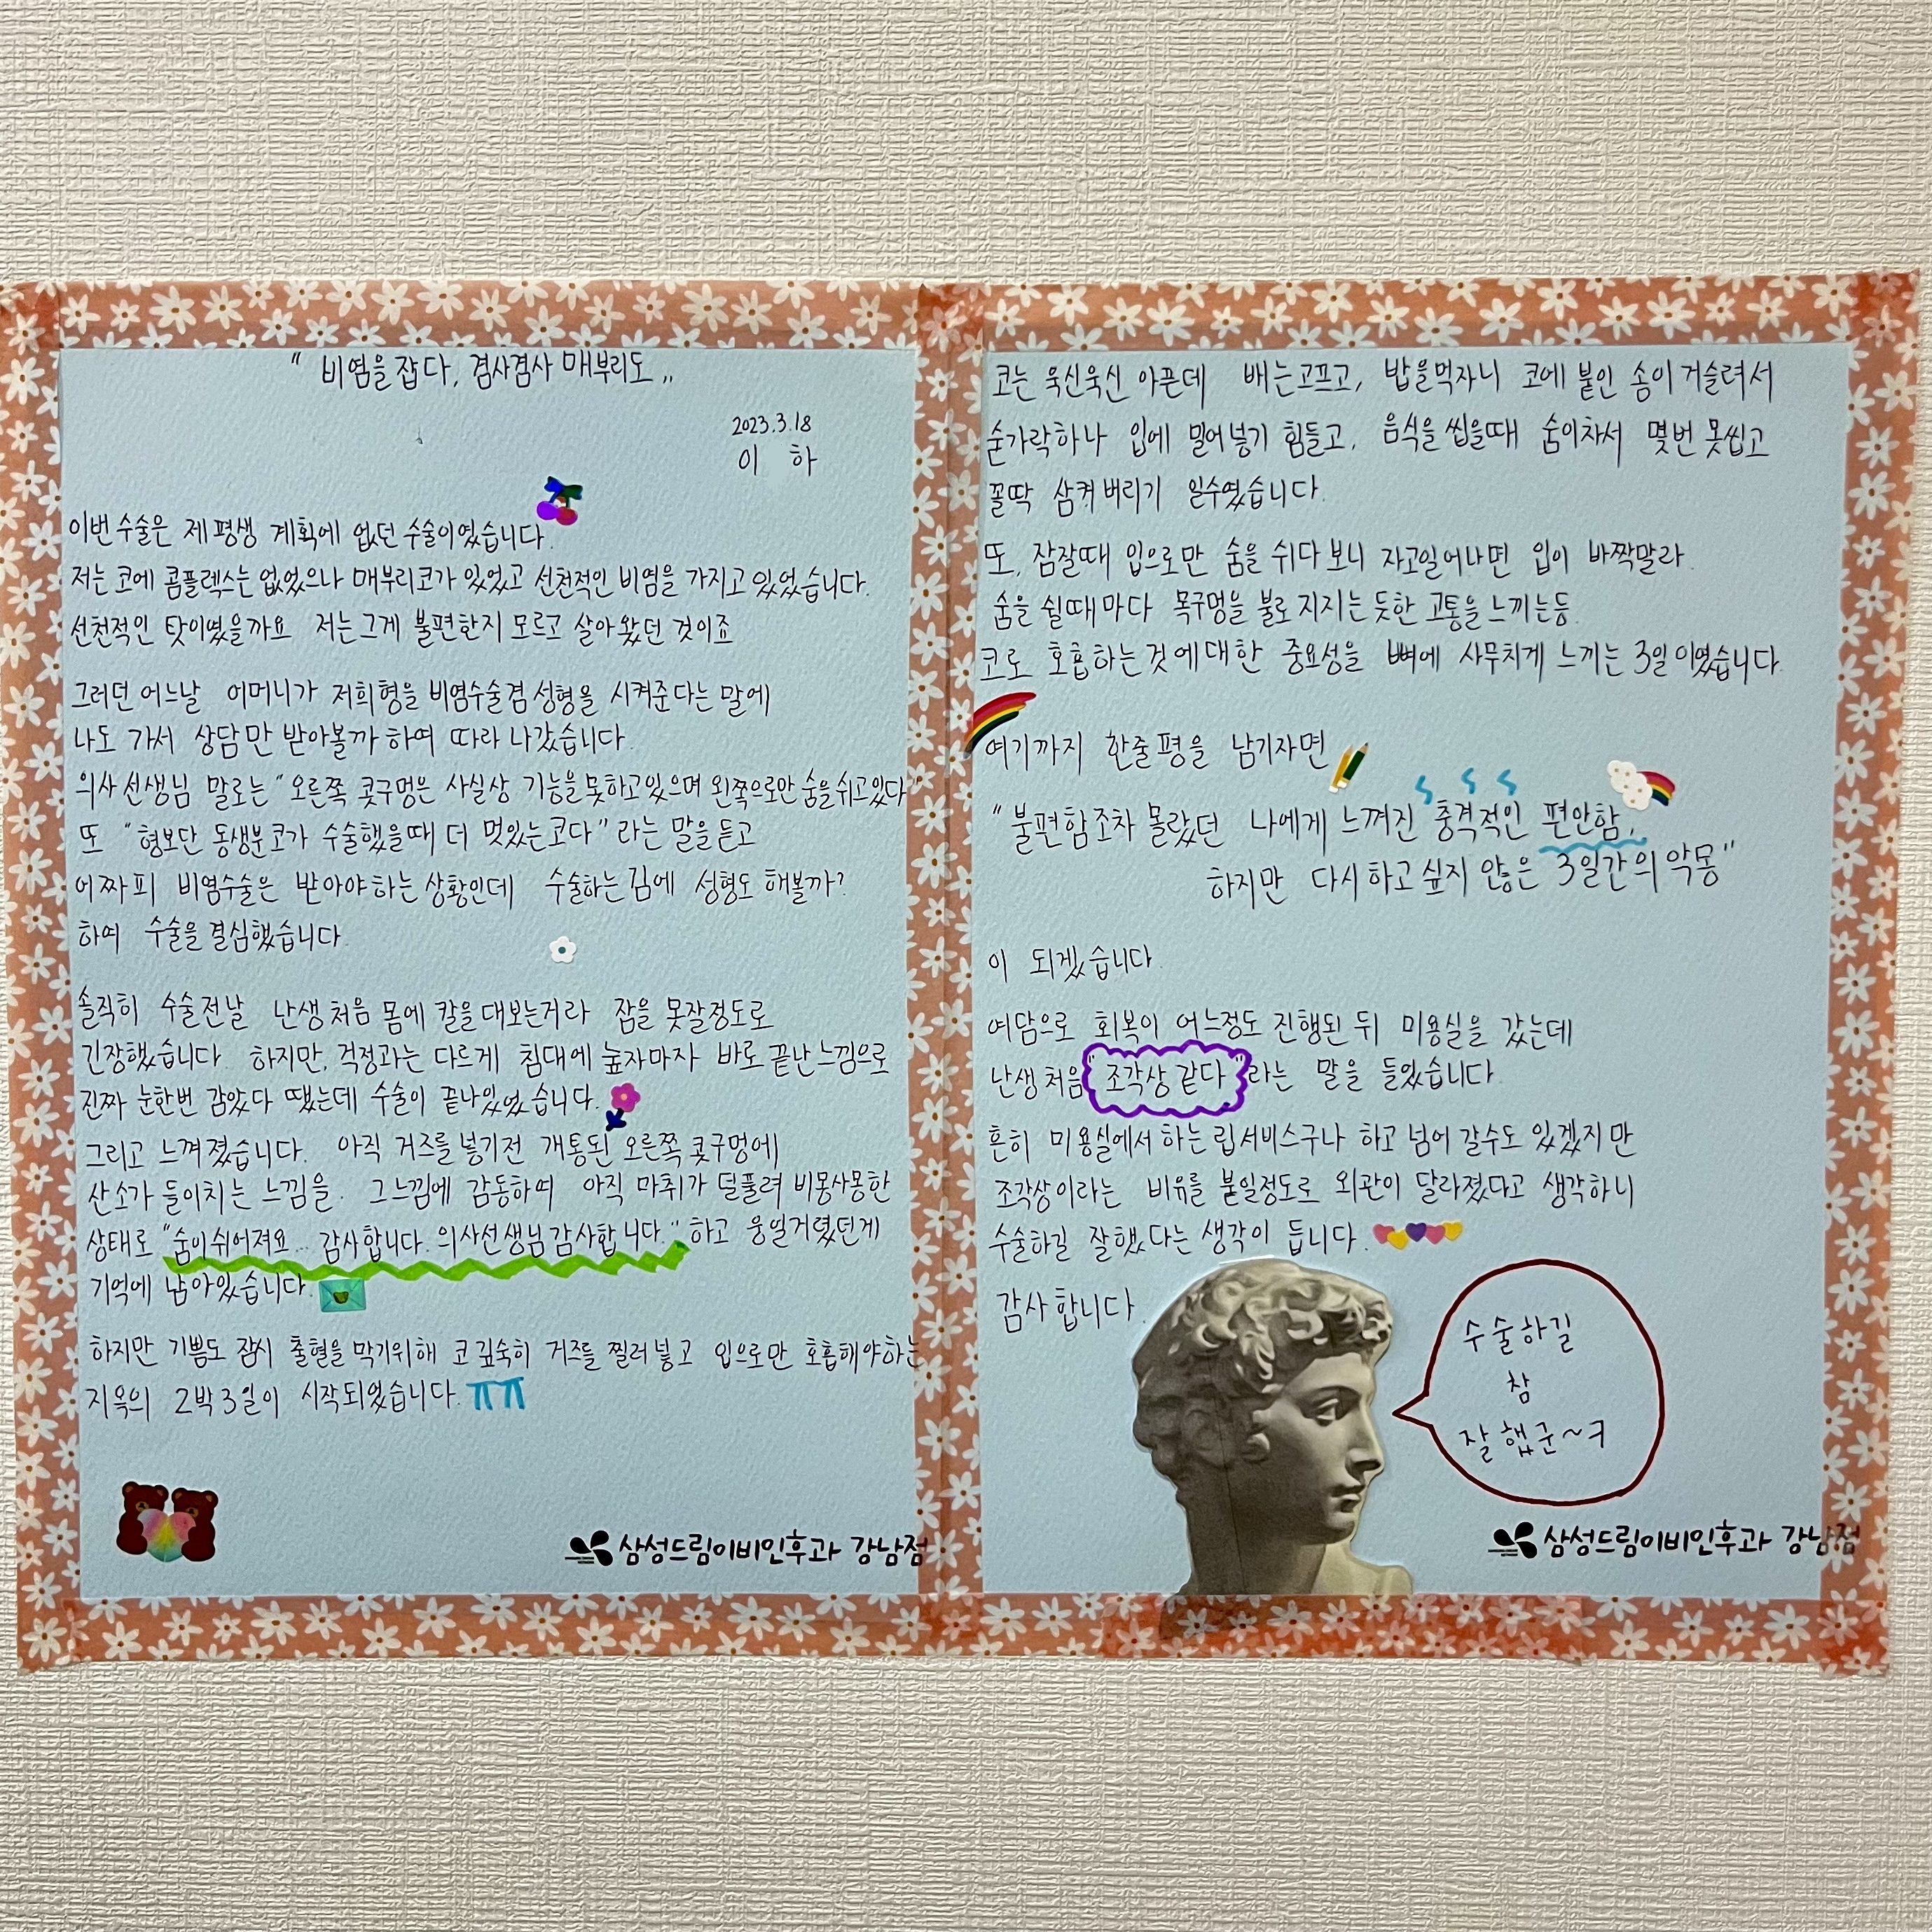 “ 비염을 잡다, 겸사겸사 매부리도 „
2023.3.18
이 하
이번 수술은 제 평생 계획에 없던 수술이였습니다.
저는 코에 콤플렉스는 없었으나 매부리코가 있었고 선천적인 비염을 가지고 있었습니다.
선천적인 탓이였을까요 저는 그게 불편한지 모르고 살아왔던 것이죠
그러던 어느날 어머니가 저희형을 비염수술겸 성형을 시켜준다는 말에
나도 가서 상담만 받아볼까 하여 따라 나갔습니다.
의사 선생님 말로는 “오른쪽 콧구멍은 사실상 기능을 못하고있으며 왼쪽으로만 숨을 쉬고있다
또 “형보단 동생분코가 수술했을때 더 멋있는코다” 라는 말을 듣고
어짜피 비염수술은 받아야하는 상황인데 수술하는 김에 성형도 해볼까?
하여 수술을 결심했습니다.
솔직히 수술전날 난생처음 몸에 칼을 대보는거라 잠을 못잘정도로
긴장했습니다. 하지만, 걱정과는 다르게 침대에 눞자마자 바로 끝난느낌으로
진짜 눈한번 감았다 떴는데 수술이 끝나있었습니다.
그리고 느껴졌습니다. 아직 거즈를 넣기전 개통된 오른쪽 콧구멍에
산소가 들이치는 느낌을. 그느낌에 감동하여 아직 마취가 덜풀려 비몽사몽한
상태로 “숨이쉬어져요... 감사합니다. 의사선생님 감사합니다.” 하고 웅얼거렸던게
기억에 남아있습니다.
하지만 기쁨도 잠시 출혈을 막기위해 코 깊숙히 거즈를 찔러 넣고 입으로만 호흡해야하는
지옥의 2박 3일이 시작되었습니다. ㅠㅠ
삼성드림이비인후과 강남점
코는 욱신욱신 아픈데 배는고프고, 밥을먹자니 코에 붙인 솜이 거슬려서
숟가락하나 입에 밀어넣기 힘들고, 음식을 씹을때 숨이차서 몇번 못씹고
꼴딱 삼켜버리기 일수였습니다.
또, 잠잘때 입으로만 숨을 쉬다보니 자고일어나면 입이 바짝말라.
숨을 쉴때마다 목구멍을 불로 지지는 듯한 고통을 느끼는등.
코로 호흡하는것에대한 중요성을 뼈에 사무치게 느끼는 3일이였습니다.
여기까지 한줄평을 남기자면
“불편함조차 몰랐던 나에게 느껴진 충격적인 편안함,
하지만 다시하고싶지 않은 3일간의 악몽”
이 되겠습니다.
여담으로 회복이 어느정도 진행된 뒤 미용실을 갔는데
난생처음 “조각상 같다” 라는 말을 들었습니다.
흔히 미용실에서 하는 립서비스구나 하고 넘어갈수도 있겠지만
조각상이라는 비유를 붙일정도로 외관이 달라졌다고 생각하니
수술하길 잘했다는 생각이 듭니다.
감사합니다.
수술하길
참
잘했군~ㅋ
삼성드림이비인후과 강남점